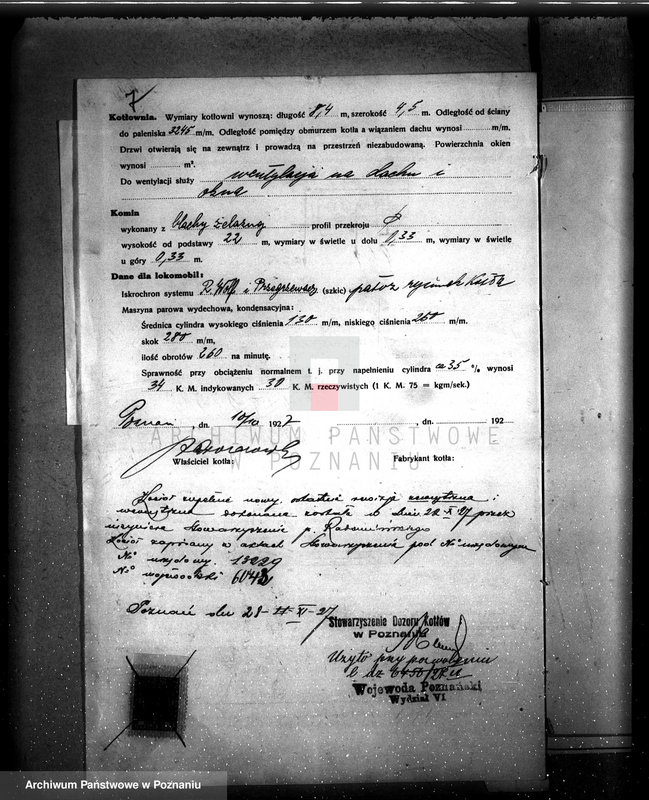 7
Kotłownia. Wymiary kotłowni wynoszą: długość 8,4 m, szerokość 4,5 m. Odległość od ściany
do paleniska 3245 m/m. Odległość pomiędzy obmurzem kotła a wiązaniem dachu wynosi m/m.
Drzwi otwierają się na zewnątrz i prowadzą na przestrzeń niezabudowaną. Powierzchnia okien
wynosi m².
Do wentylacji służy wentylacja na dachu i
okna
Komin
wykonany z blachy żelaznej profil przekroju
wysokość od podstawy 22 m, wymiary w świetle u dołu 0,33 m, wymiary w świetle
u góry 0,33 m.
Dane dla lokomobil:
Iskrochron systemu R. Wolf i Przegrzewacz (szkic) patrz rysunek kotła
Maszyna parowa wydechowa, kondensacyjna:
Średnica cylindra wysokiego ciśnienia 130 m/m, niskiego ciśnienia 260 m/m.
skok 280 m/m,
ilość obrotów 260 na minutę.
Sprawność przy obciążeniu normalnem t. j. przy napełnieniu cylindra ca 35 % wynosi
34 K. M. indykowanych 30 K. M. rzeczywistych (1 K. M. 75 = kgm/sek.)
Poznań, dn. 10/10 1927 , dn. 192
Właściciel kotła: Fabrykant kotła:
Kocioł zupełnie nowy, ostatni rewizja zewnętrzna i
wewnętrzna dokonana została w dniu 22 X 27 przez
inżyniera Stowarzyszenia p. Radomińskiego
Kocioł zapisany w aktach Stowarzyszenia pod No urzędowym
No urzędowy 13229
No wojewódzki
Poznań dn 28 XI 27
Stowarzyszenie Dozoru Kotłów
w Poznaniu
Użyto przy pozwoleniu
l. dz.
Wojewoda Poznański
Wydział VI
ARCHIWUM PAŃSTWOWE
W POZNANIU
Archiwum Państwowe w Poznaniu